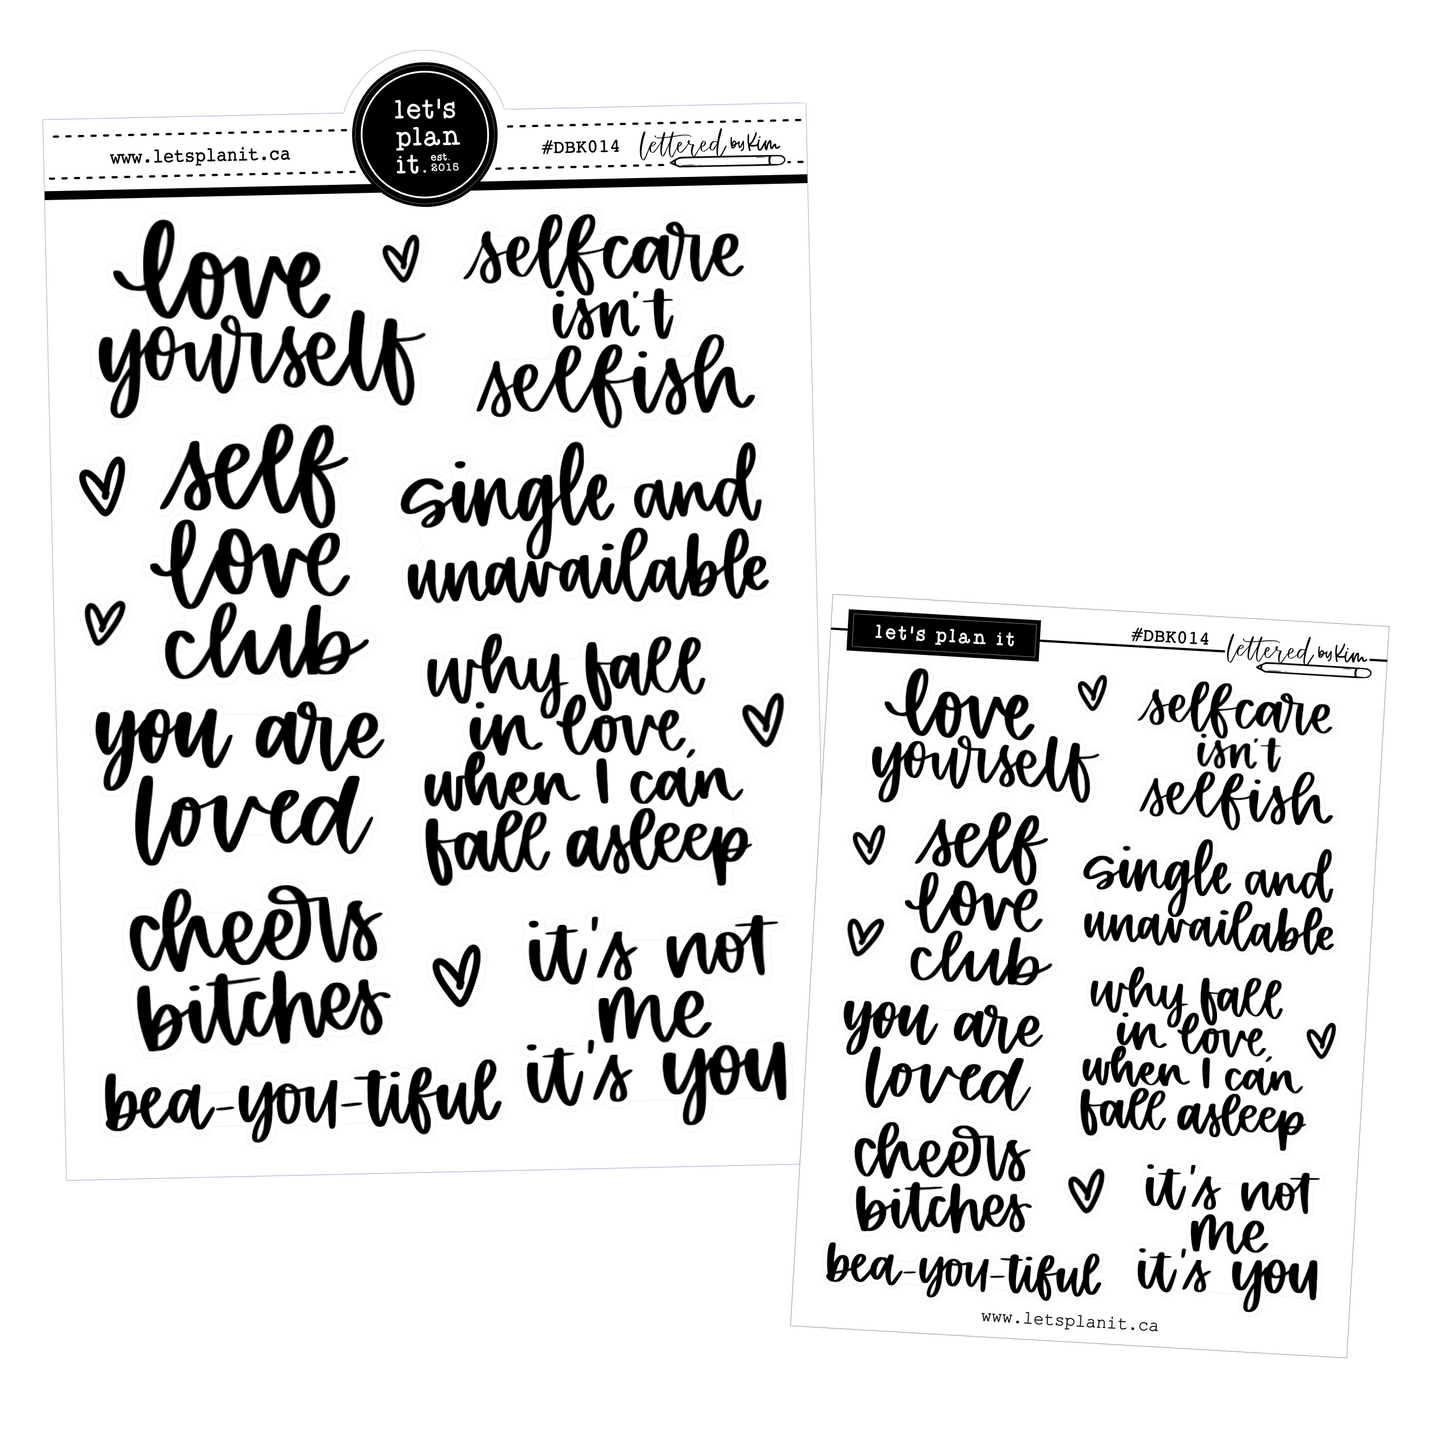 let's
plan
it.
est.
2015
www.letsplanit.ca
#DBK014
lettered by Kim
love
yourself
self
love
club
you are
loved
cheers
bitches
bea-you-tiful
selfcare
isn't
selfish
single and
unavailable
why fall
in love,
when I can
fall asleep
it's not
me
it's you
let's plan it
#DBK014
lettered by Kim
love
yourself
self
love
club
you are
loved
cheers
bitches
bea-you-tiful
selfcare
isn't
selfish
single and
unavailable
why fall
in love,
when I can
fall asleep
it's not
me
it's you
www.letsplanit.ca